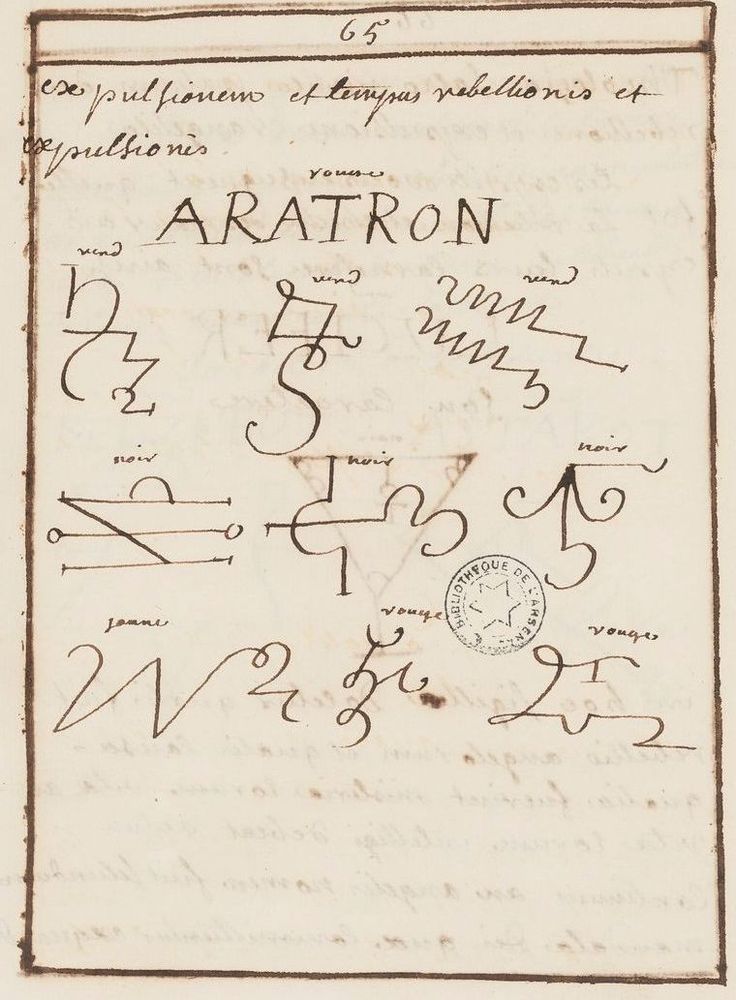 65
expulsionem et tempus rebellionis et
expulsionis
rouge
ARATRON
verd verd verd
noir noir noir
jaune rouge rouge
BIBLIOTHEQUE DE L'ARSENAL